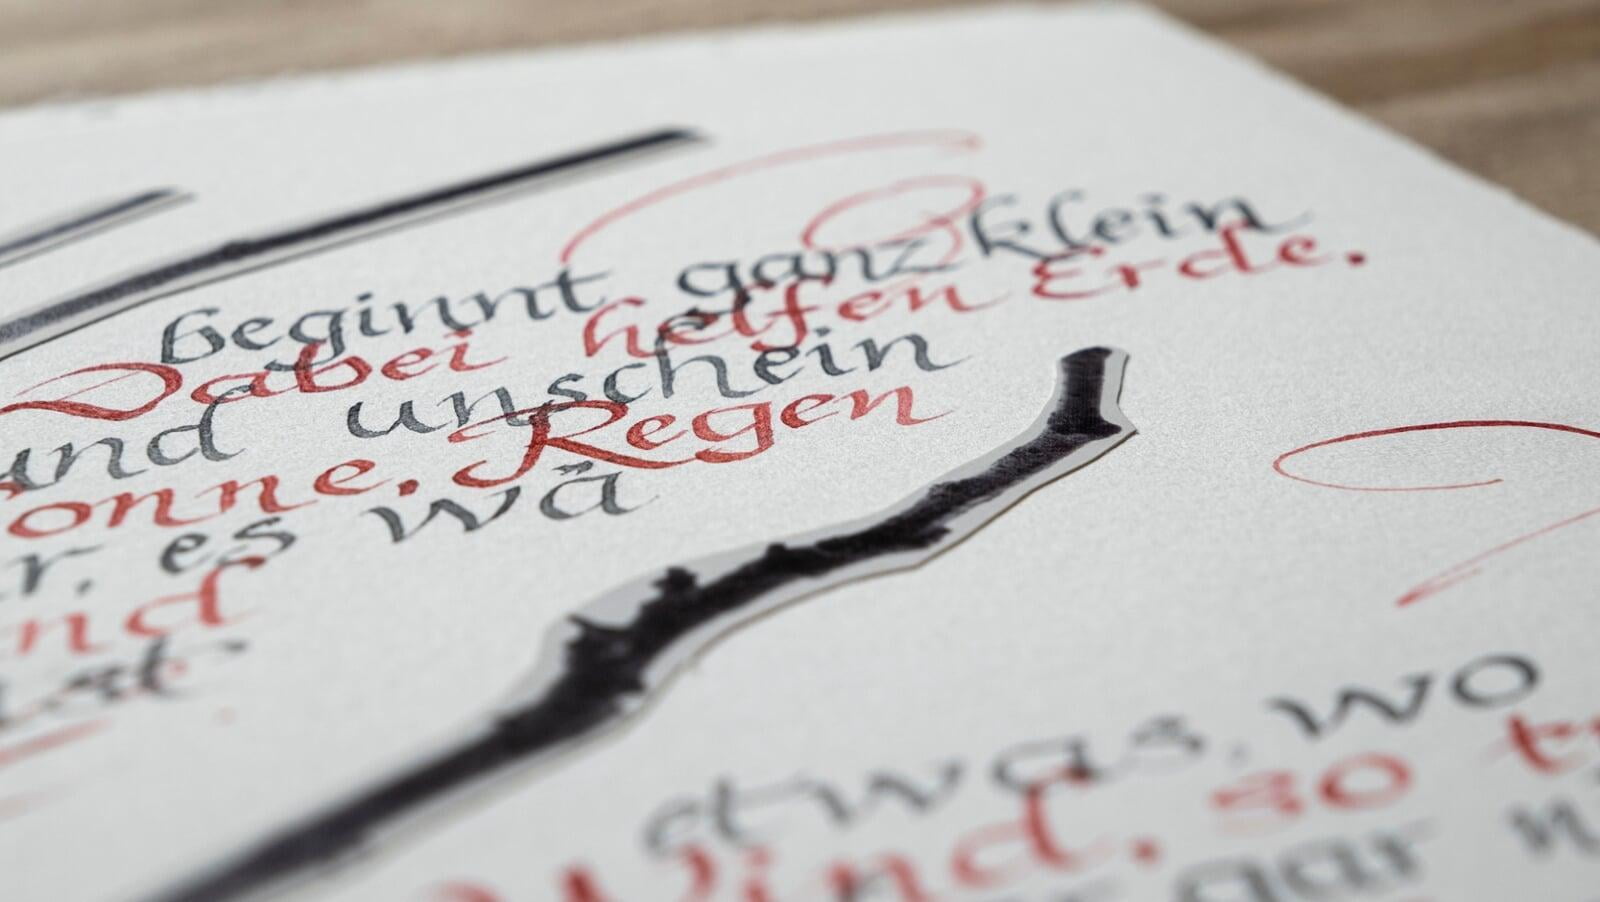 beginnt ganz klein
Dabei helfen Erde.
und unschein
onne. Regen
r. es wä
nd
st
etwas, wo
Wind. so
gar